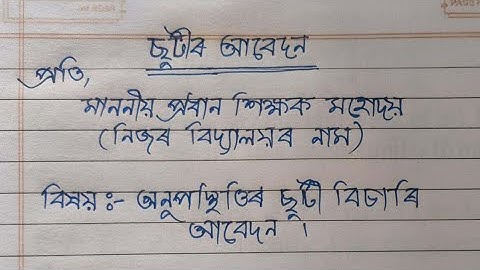 ছুটীৰ আবেদন
প্ৰতি,
মাননীয় প্ৰধান শিক্ষক মহোদয়
(নিজৰ বিদ্যালয়ৰ নাম)
বিষয় :- অনুপস্থিতিৰ ছুটী বিচাৰি
আবেদন ।